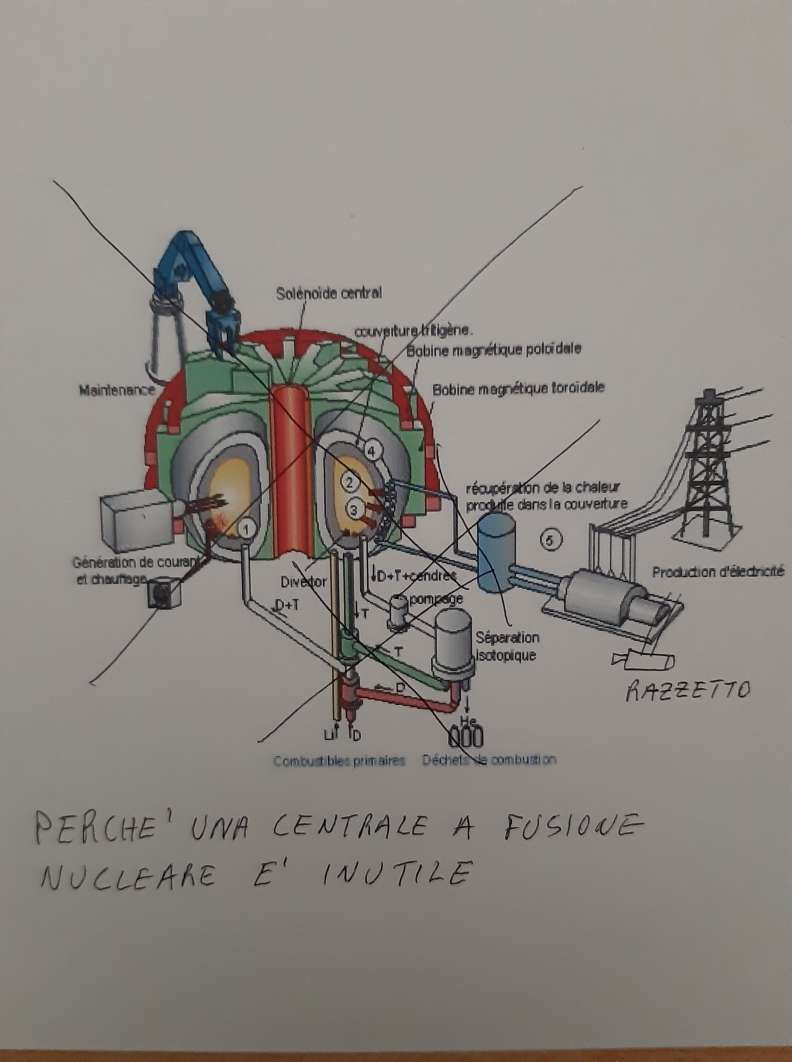 Solénoïde central
couverture tritigène.
Bobine magnétique poloïdale
Maintenance
Bobine magnétique toroïdale
4
2
récupération de la chaleur
produite dans la couverture
3
1
5
Génération de courant
et chauffage
Production d'électricité
Divertor
D+T+cendres
D+T
pompage
T
Séparation
isotopique
T
D
RAZZETTO
He
Li
D
Combustibles primaires
Déchets de combustion
PERCHE' UNA CENTRALE A FUSIONE
NUCLEARE E' INUTILE